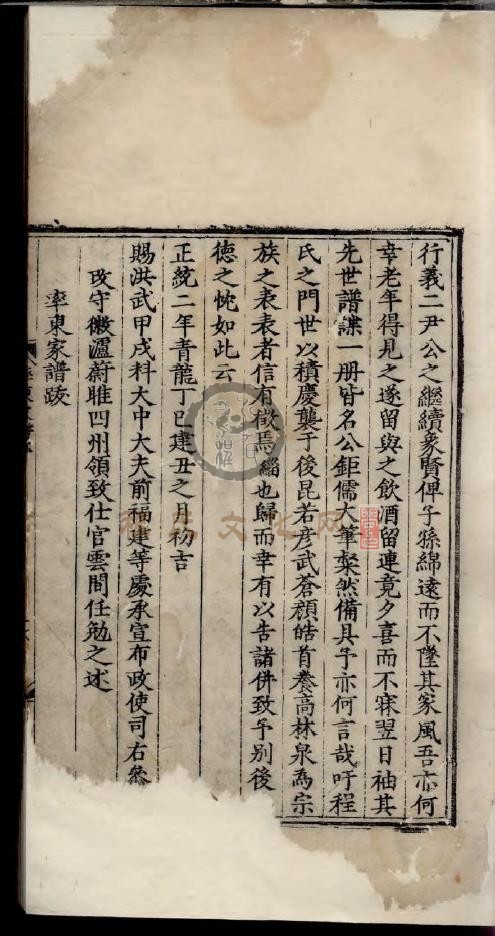 行義二尹公之繼續象賢俾子孫綿遠而不墜其家風吾亦何
幸老年得見之遂留與之飲酒留連竟夕喜而不寐翌日袖其
先世譜諜一册皆名公鉅儒大筆粲然備具予亦何言哉吁程
氏之門世以積慶襲于後昆若彦武蒼顔皓首養高林泉為宗
族之表表者信有徵焉緇也歸而幸有以告諸併致予别後
德之忱如此云
正統二年青龍丁巳建丑之月初吉
賜洪武甲戌科大中大夫前福建等處承宣布政使司右叅
政守徽瀘蔚睢四州領致仕官雲間任勉之述
率東家譜跋